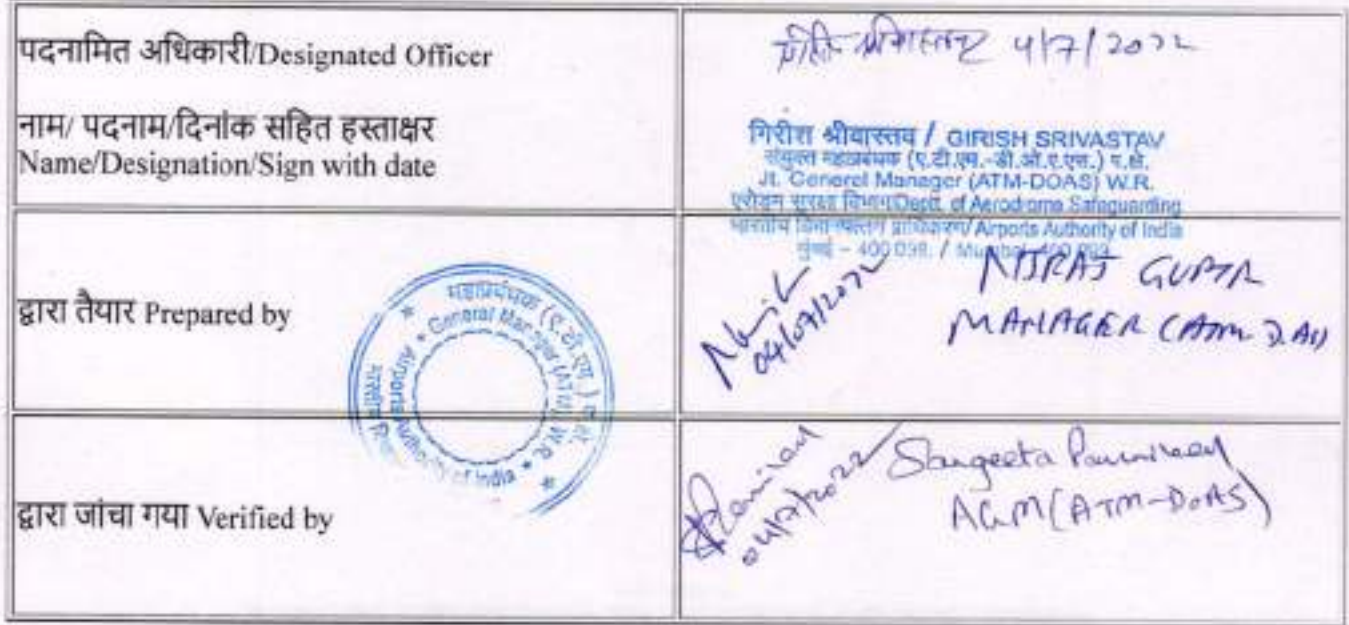 पदनामित अधिकारी/Designated Officer
4/7/2022
नाम/ पदनाम/दिनांक सहित हस्ताक्षर
Name/Designation/Sign with date
गिरीश श्रीवास्तव / GIRISH SRIVASTAV
संयुक्त महाप्रबंधक (ए.टी.एम.-डी.ओ.ए.एस.) प.क्षे.
Jt. General Manager (ATM-DOAS) W.R.
एरोड्रम सुरक्षा विभाग/Deptt. of Aerodrome Safeguarding
भारतीय विमानपत्तन प्राधिकरण/Airports Authority of India
मुंबई - 400 099. / Mumbai-400 099.
द्वारा तैयार Prepared by
महाप्रबंधक (ए.टी.एम.)
General Manager (ATM), W.R.
Airports Authority of India
04/07/2022
NIJRAJ GUPTA
MANAGER (ATM
द्वारा जांचा गया Verified by
04/7/2022
Sangeeta
AGM(ATM-DoAS)